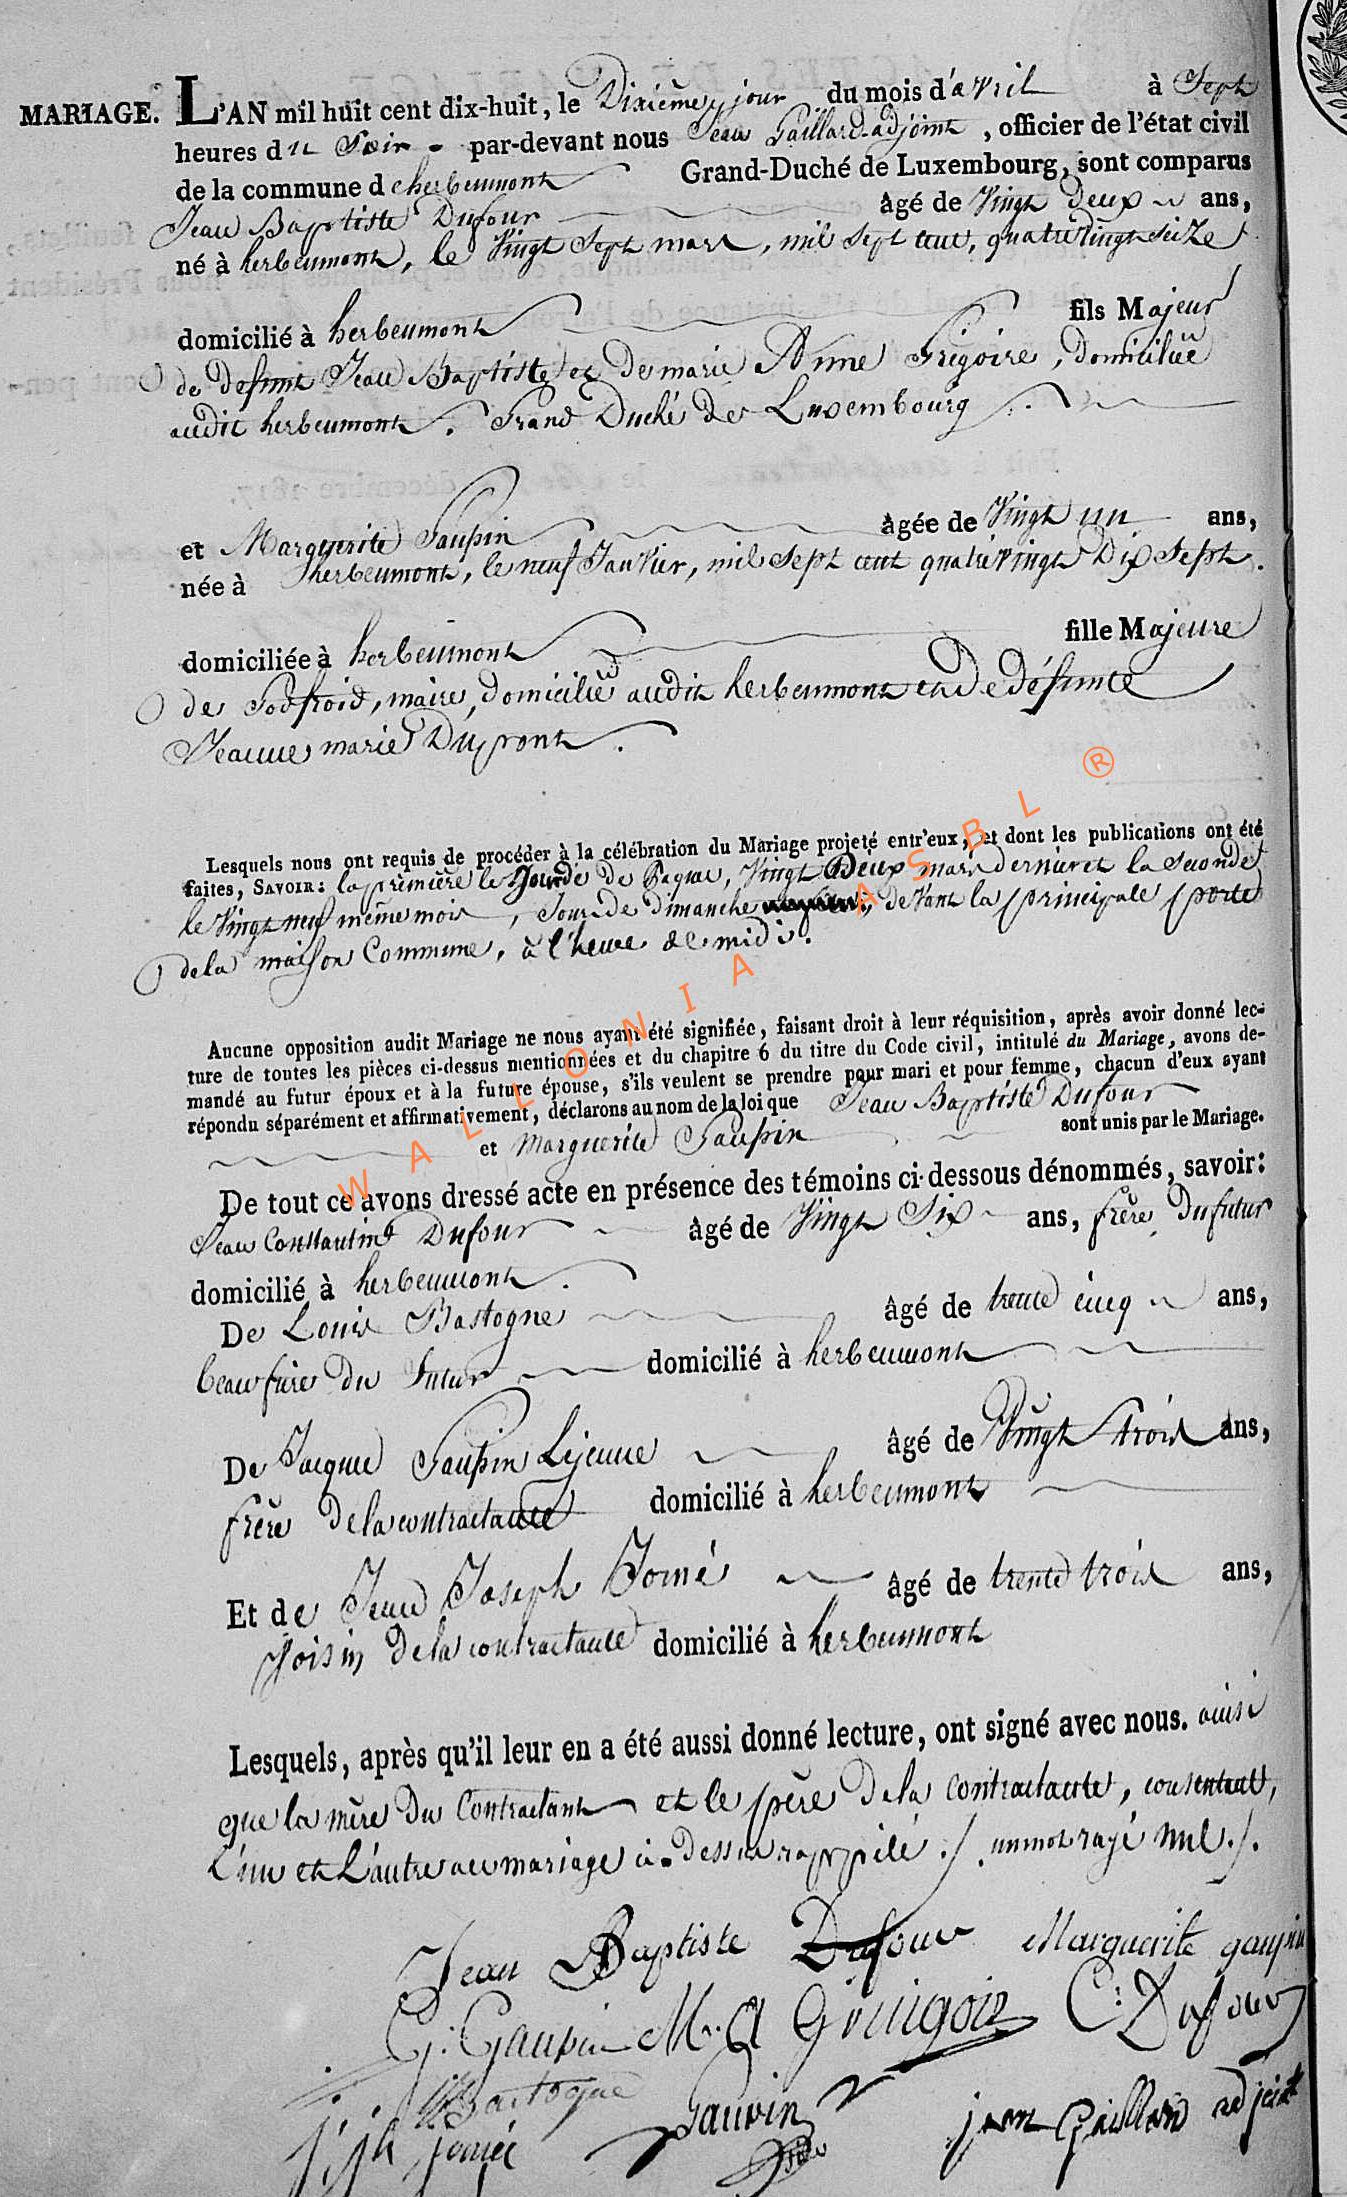 MARIAGE. L'AN mil huit cent dix-huit, le Dixième jour du mois d'avril à Sept
heures du Soir par-devant nous Jean Gaillard adjoint, officier de l'état civil
de la commune d'herbeumont Grand-Duché de Luxembourg, sont comparus
Jean Baptiste Dufour âgé de Vingt Deux ans,
né à herbeumont, le Vingt Sept mars, mil sept cent, quatre vingt seize
domicilié à herbeumont fils Majeur
de defunt Jean Baptiste et de marie Anne Grégoire, domiciliée
audit herbeumont. Grand Duché de Luxembourg.
et Marguerite Gaupin agée de Vingt un ans,
née à herbeumont, le neuf Janvier, mil Sept cent quatre vingt Dix Sept.
domiciliée à herbeumont fille Majeure
de Godfroid, maire, domicilié audit herbeumont et de défunte
Jeanne marie Dupont.
Lesquels nous ont requis de procéder à la célébration du Mariage projeté entr'eux, et dont les publications ont été
faites, SAVOIR: la première le Jour de Paque, Vingt Deux mars dernier et la Seconde
le Vingt neuf même mois, Jour de dimanche, devant la principale porte
de la maison Commune, à l'heure de midi.
Aucune opposition audit Mariage ne nous ayant été signifiée, faisant droit à leur réquisition, après avoir donné lec-
ture de toutes les pièces ci-dessus mentionnées et du chapitre 6 du titre du Code civil, intitulé du Mariage, avons de-
mandé au futur époux et à la future épouse, s'ils veulent se prendre pour mari et pour femme, chacun d'eux ayant
répondu séparément et affirmativement, déclarons au nom de la loi que Jean Baptiste Dufour
et Marguerite Gaupin sont unis par le Mariage.
De tout ce avons dressé acte en présence des témoins ci-dessous dénommés, savoir:
Jean Constantin Dufour âgé de Vingt Six ans, frère du futur
domicilié à herbeumont.
De Louis Bastogne âgé de trente cinq ans,
beau frère du futur domicilié à herbeumont
De Jacque Gaupin Lejeune âgé de Vingt trois ans,
frère de la contractante domicilié à herbeumont
Et de Jean Joseph Jomé âgé de trente trois ans,
Voisin de la contractante domicilié à herbeumont
Lesquels, après qu'il leur en a été aussi donné lecture, ont signé avec nous. ainsi
que la mère du Contractant et le père de la contractante, consentent,
L'un et L'autre au mariage ci-dessus rappelé ./. un mot rayé nul ./.
Jean Baptiste Dufour Marguerite gaupin
G: Gaupin M. A Grigoir C: Dufour
Bastogne
j: jh jomé Gaupin jean Gaillard adjoint
WALLONIA ASBL ®